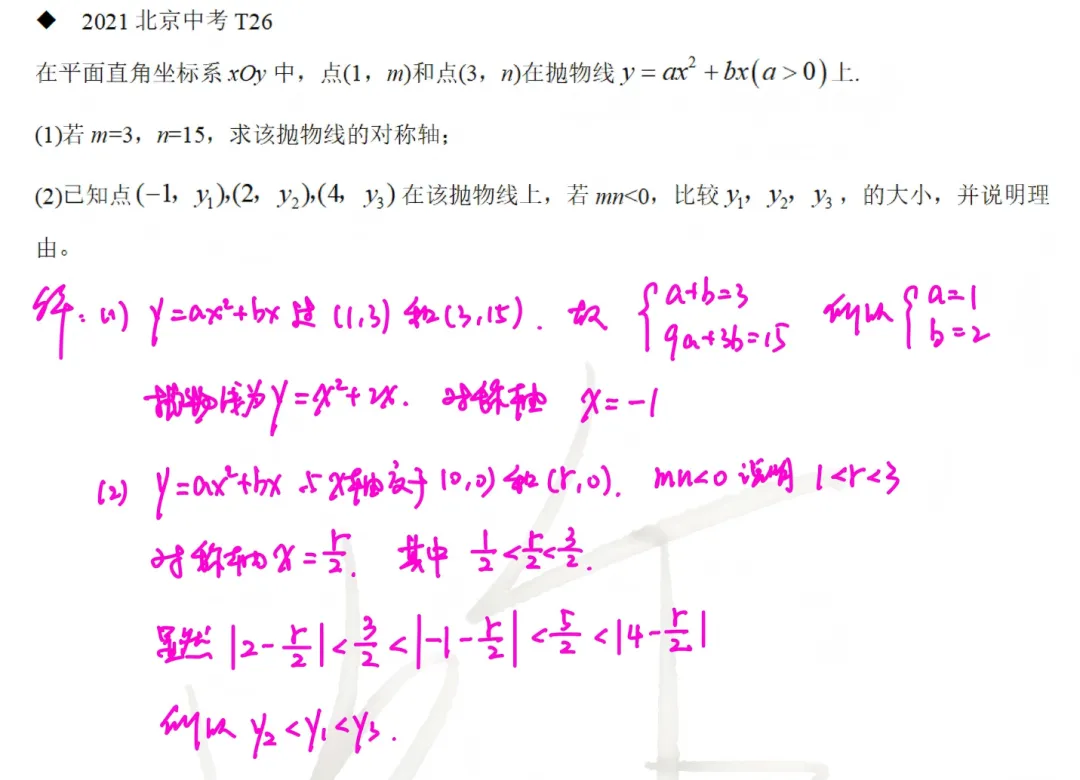 ◆ 2021 北京中考 T26
在平面直角坐标系 xOy 中，点(1，m)和点(3，n)在抛物线 y = ax² + bx(a > 0)上.
(1)若 m=3，n=15，求该抛物线的对称轴；
(2)已知点(−1，y₁),(2，y₂),(4，y₃)在该抛物线上，若 mn<0，比较 y₁，y₂，y₃，的大小，并说明理
由。
解: (1) y=ax²+bx 过 (1,3) 和 (3,15). 故 {a+b=3 9a+3b=15 所以 {a=1 b=2
抛物线为 y=x²+2x. 对称轴 x=-1
(2) y=ax²+bx 与x轴交于 (0,0) 和 (r,0). mn<0 说明 1<r<3
对称轴为 x=r/2. 其中 1/2<r/2<3/2.
显然 |2-r/2|<3/2<|-1-r/2|<5/2<|4-r/2|
所以 y₂<y₁<y₃.